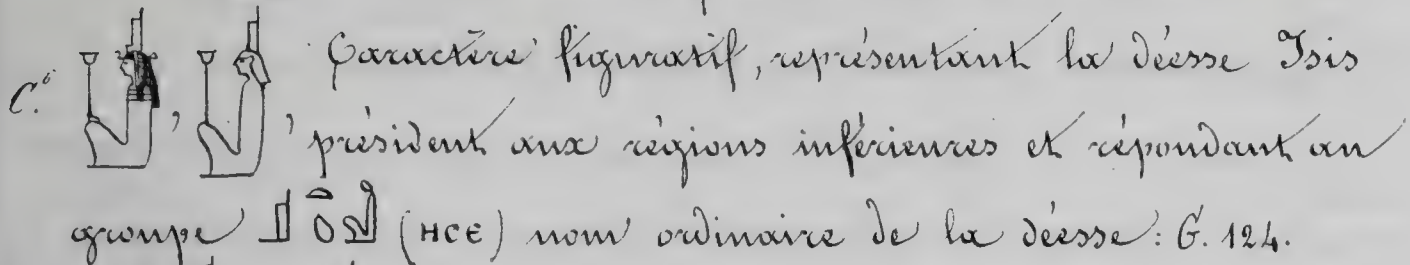 C. 𓁥, 𓁥, Caractère figuratif, représentant la déesse Isis
président aux régions inférieures et répondant au
groupe 𓊨𓏏𓆇𓁐 (ⲎⲤⲈ) nom ordinaire de la déesse: G. 124.